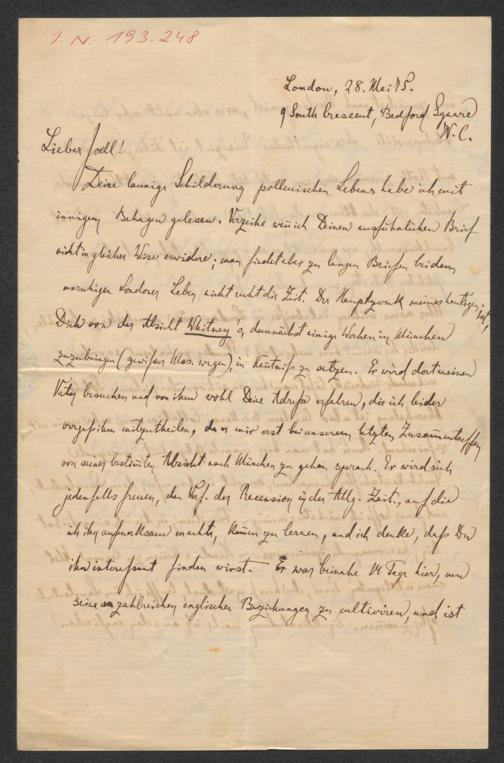 I. N. 193.248
London, 28. Mai 75.
9 South Crescent, Bedford Square
W. C.
Lieber Jodl!
Deine launige Schilderung pollenischen Lebens habe ich mit
innigem Behagen gelesen. Verzeihe wenn ich Deinen ausführlichen Brief
nicht in gleicher Weise erwidere; man findet aber zu langen Briefen bei dem
unruhigen Londoner Leben nicht recht die Zeit. Der Hauptzweck meines heutigen ist,
Dich von der Absicht Whitney's, demnächst einige Wochen in München
zuzubringen (gewisser Mss. wegen), in Kentniß zu setzen. Er wird dort meinen
Vater besuchen und von ihm wohl Deine Adresse erfahren, die ich leider
vergaß ihm mitzutheilen, da er mir erst bei unserem letzten Zusammentreffen
von seiner bestimmten Absicht nach München zu gehen sprach. Er wird sich
jedenfalls freuen, den Verf. der Recension in der Allg. Zeit., auf die
ich ihn aufmerksam machte, kennen zu lernen, und ich denke, daß Du
ihn interessant finden wirst. Er war beinahe 14 Tage hier, um
seine zahlreichen englischen Beziehungen zu cultiviren, und ist